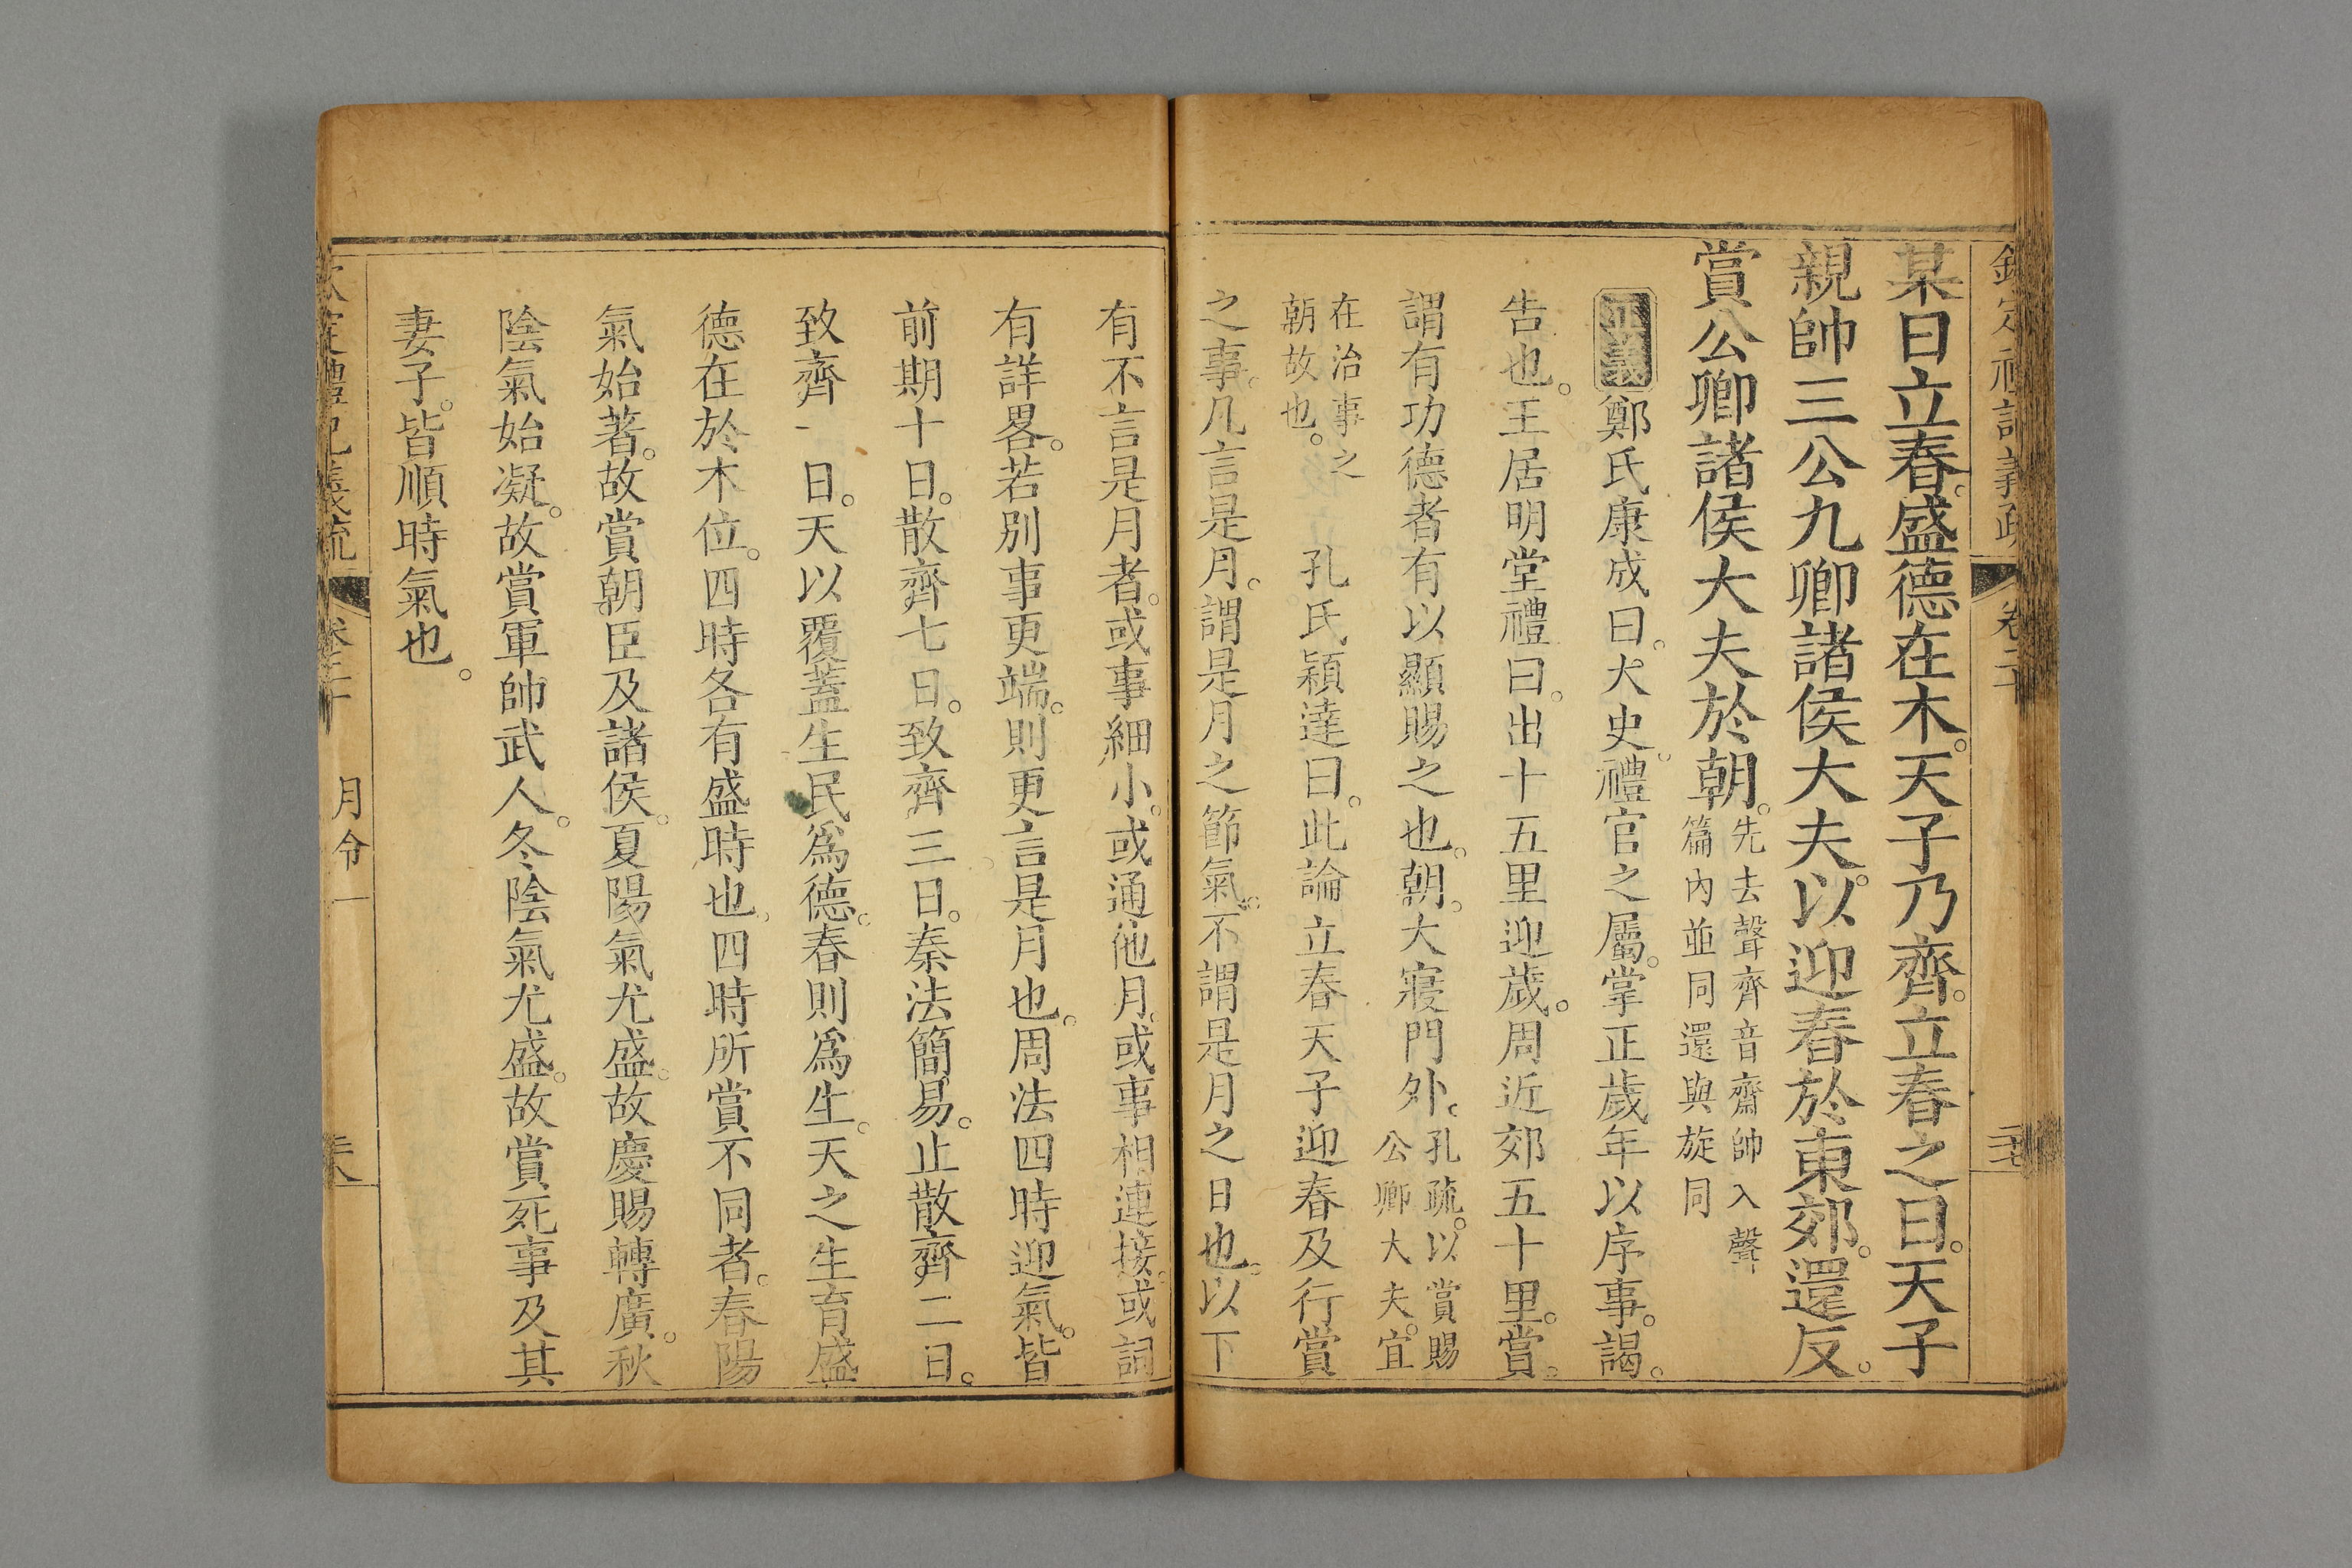 某日立春。盛德在木。天子乃齊。立春之日。天子
親帥三公九卿諸侯大夫。以迎春於東郊。還反。
賞公卿諸侯大夫於朝。
先去聲齊音齋帥入聲
篇內並同還與旋同
正義鄭氏康成曰。大史。禮官之屬。掌正歲年以序事。謁。
告也。王居明堂禮曰。出十五里迎歲。周近郊五十里。賞。
謂有功德者有以顯賜之也。朝。大寢門外。
孔疏。以賞賜
公卿大夫。宜
在治事之
朝故也。
孔氏穎達曰。此論立春天子迎春及行賞
之事。凡言是月。謂是月之節氣。不謂是月之日也。以下
有不言是月者。或事細小。或通他月。或事相連接。或詞
有詳畧。若別事更端。則更言是月也。周法四時迎氣。皆
前期十日。散齊七日。致齊三日。秦法簡易。止散齊二日。
致齊一日。天以覆蓋生民爲德。春則爲生。天之生育盛
德在於木位。四時各有盛時也。四時所賞不同者。春陽
氣始著。故賞朝臣及諸侯。夏陽氣尤盛。故慶賜轉廣。秋
陰氣始凝。故賞軍帥武人。冬陰氣尤盛。故賞死事及其
妻子。皆順時氣也。
月令一